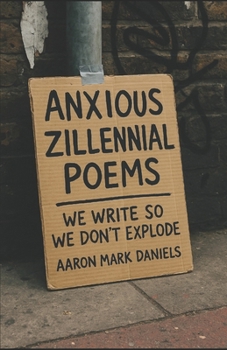 ANXIOUS
ZILLENNIAL
POEMS
WE WRITE SO
WE DON'T EXPLODE
AARON MARK DANIELS